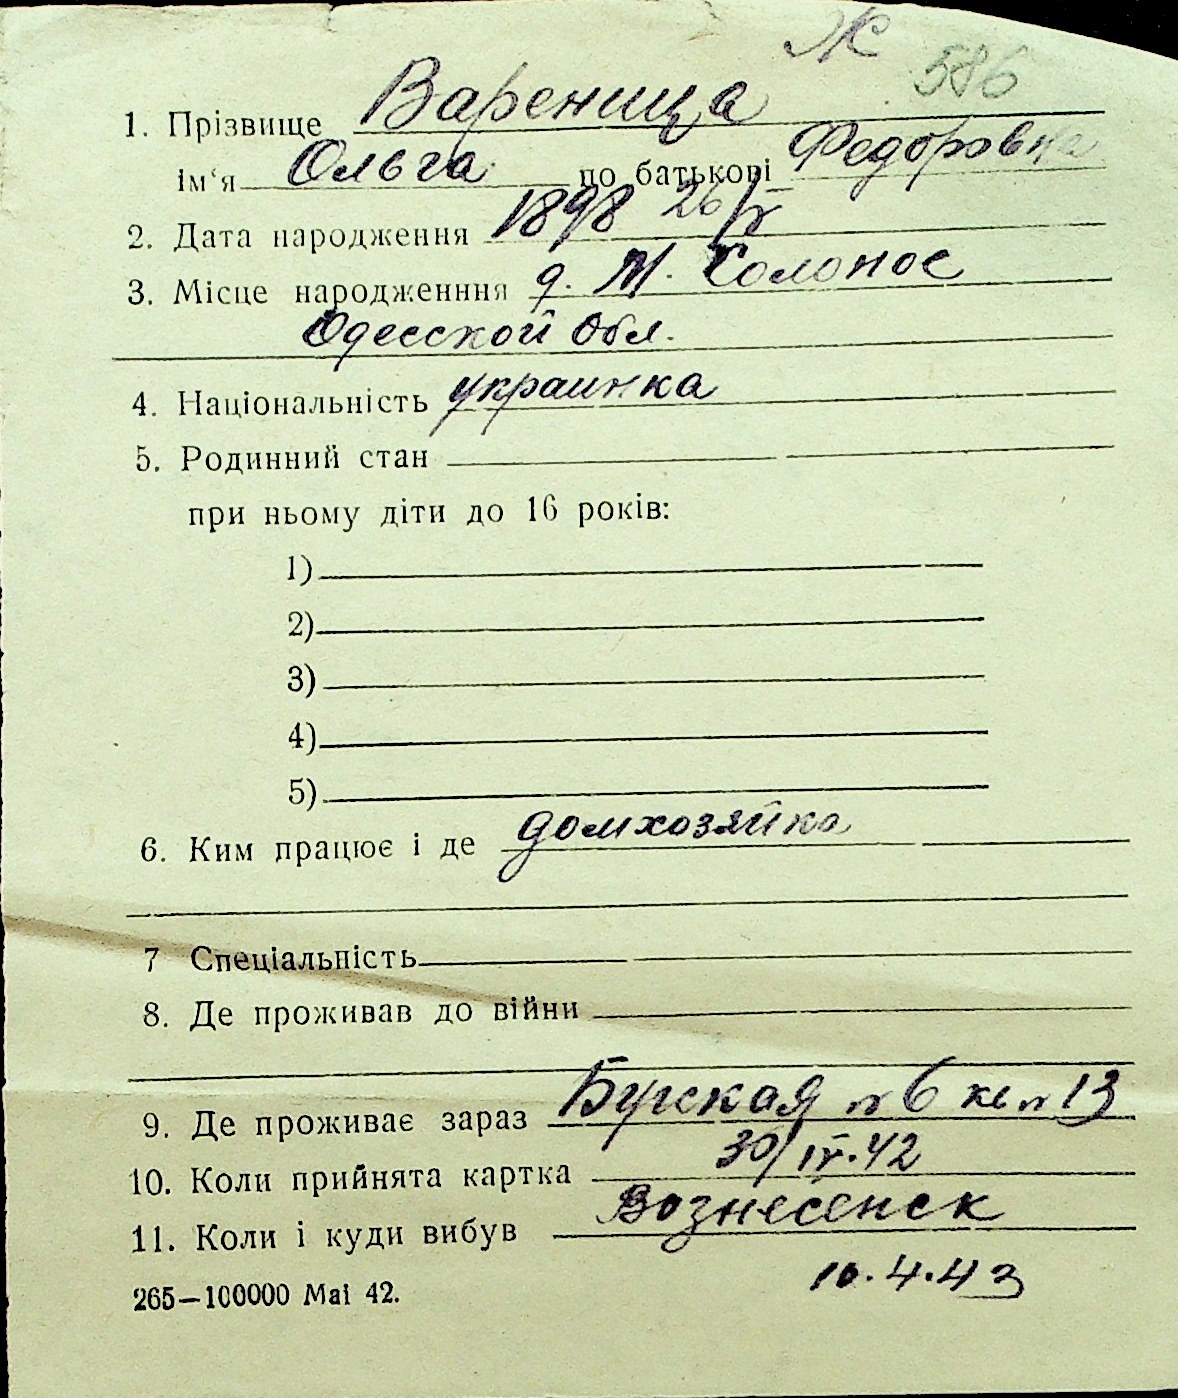 Ж 586
1. Прізвище Вареница
ім‘я Ольга по батькові Федоровна
2. Дата народження 1898 26/V
3. Місце народженння д. М. Солоное
Одесской Обл.
4. Національність украинка
5. Родинний стан
при ньому діти до 16 років:
1)
2)
3)
4)
5)
6. Ким працює і де домхозяйка
7 Спеціальність
8. Де проживав до війни
9. Де проживає зараз Бугская № 6 кв № 13
10. Коли прийнята картка 30/IV.42
11. Коли і куди вибув Вознесенск
10.4.43
265—100000 Mai 42.